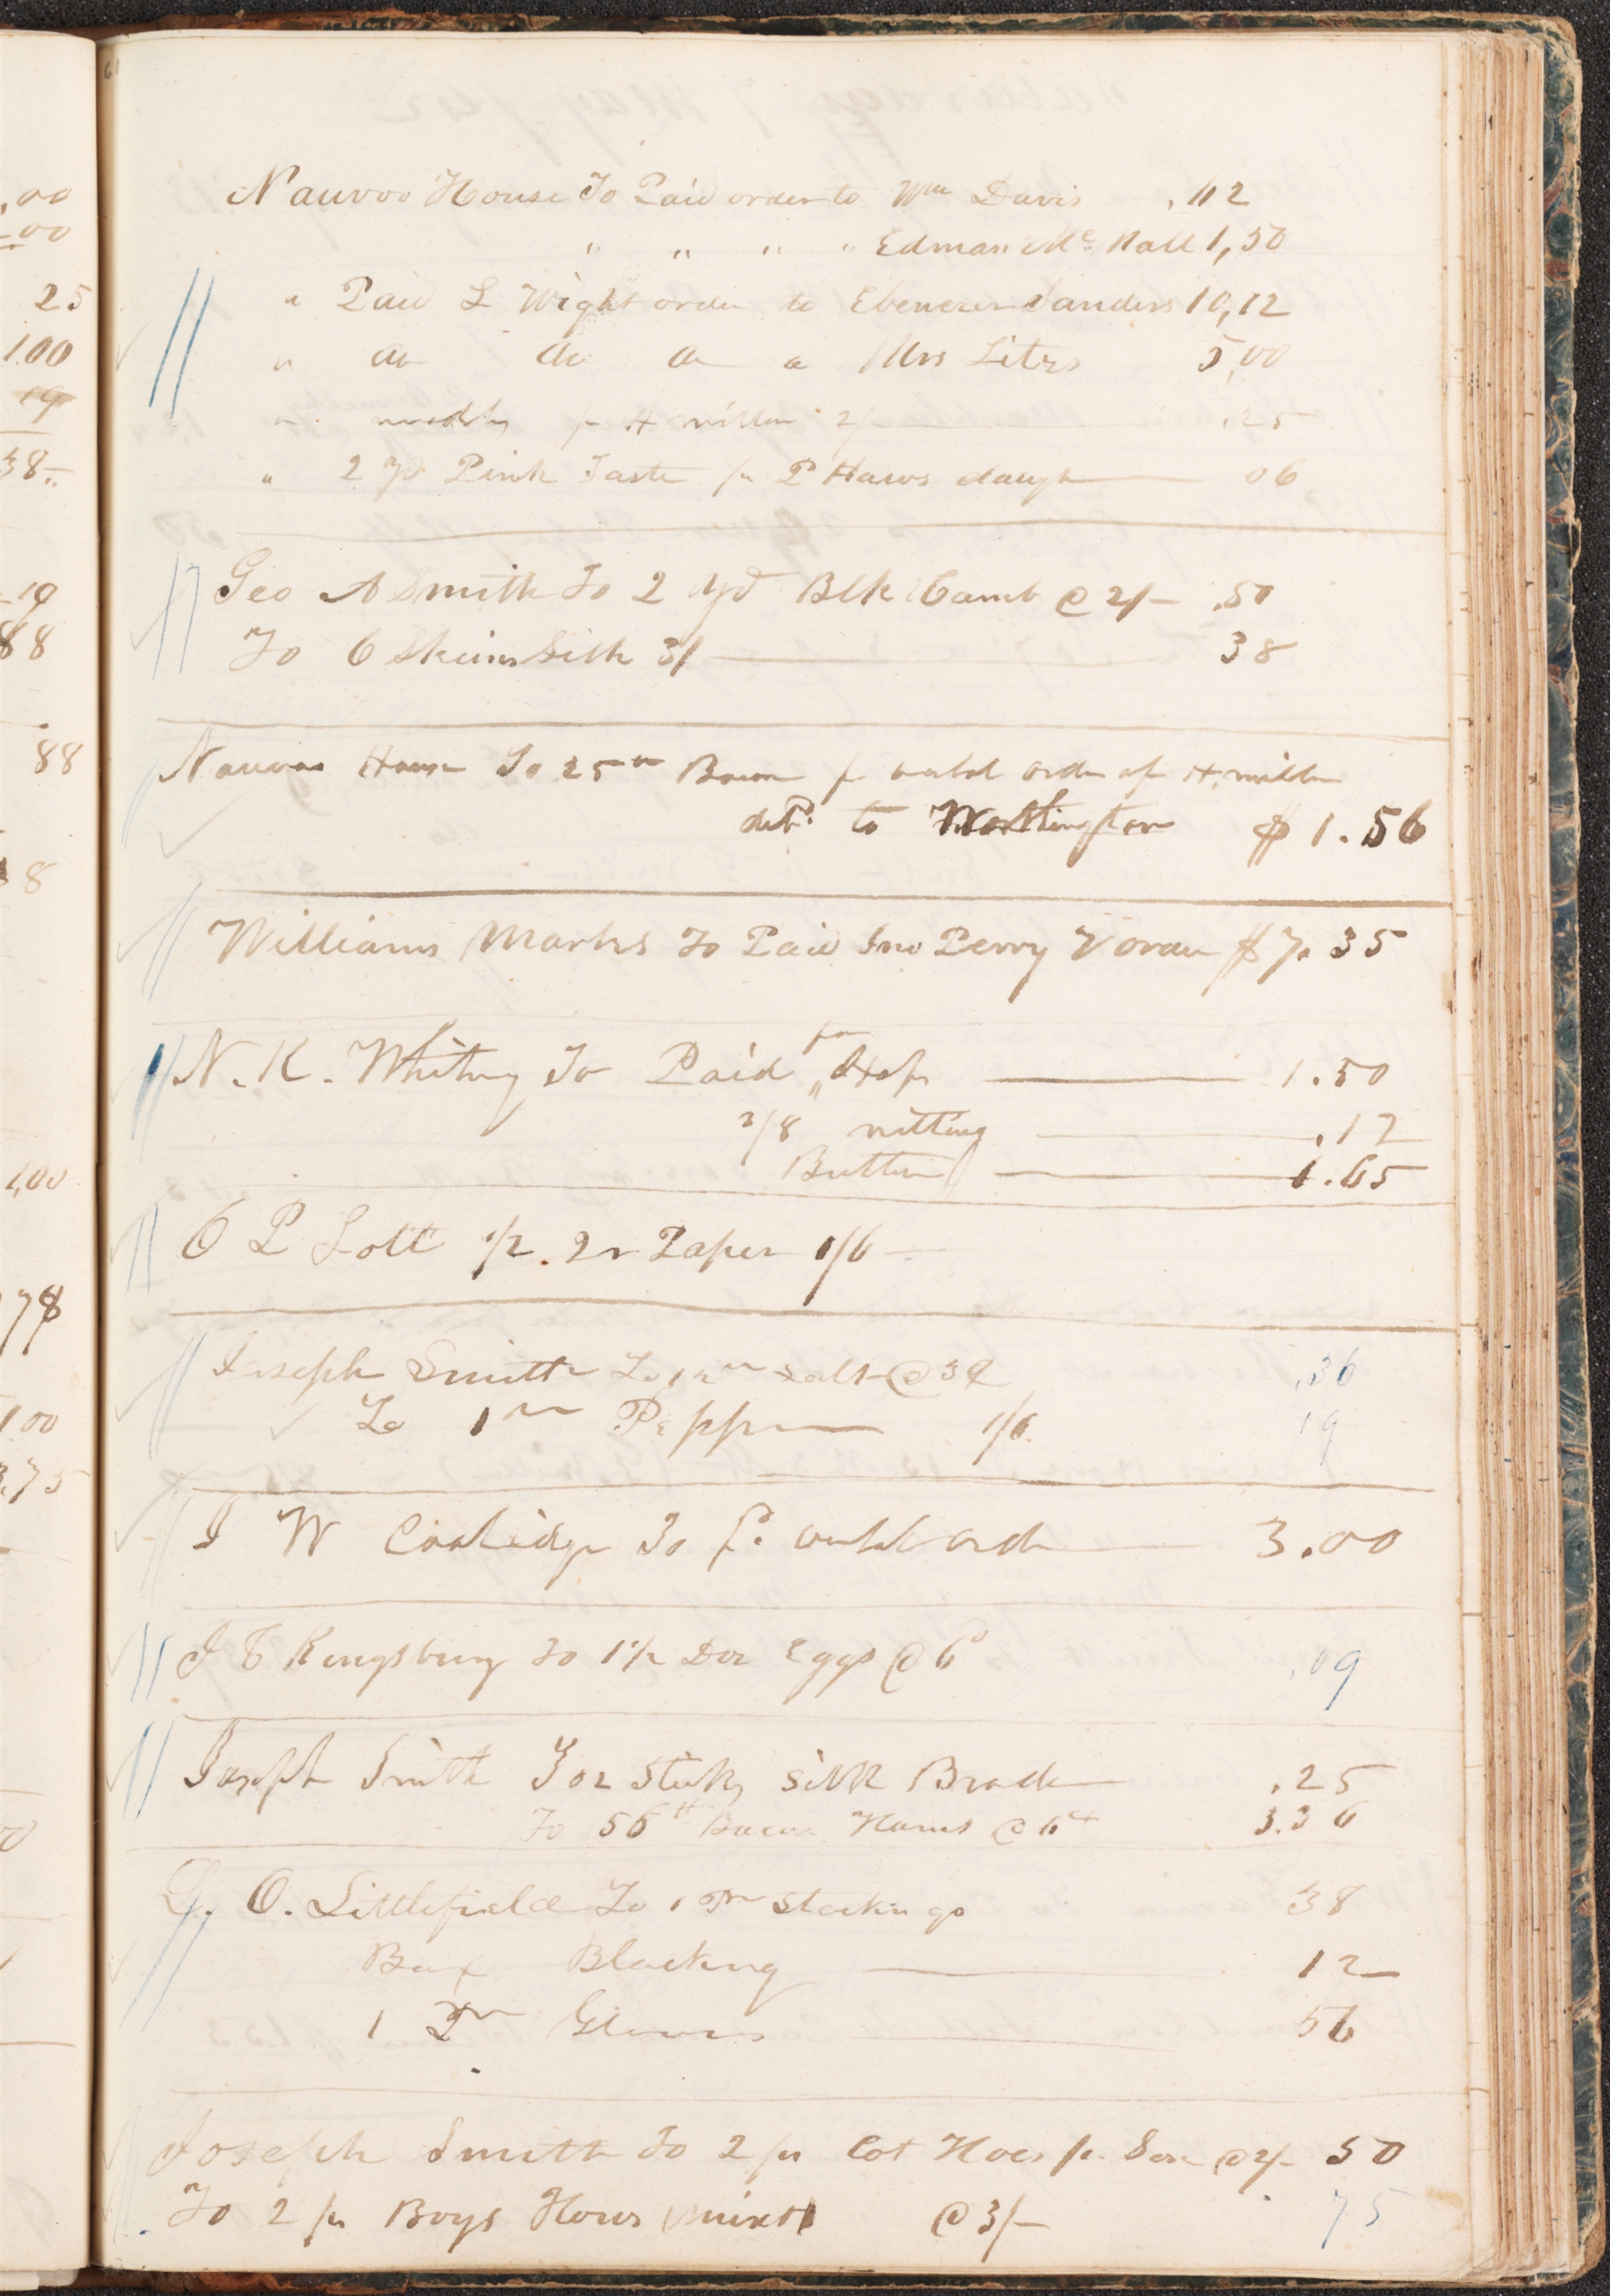 ,00
.00
25
1.00
19
38
10
88
88
8
1,00
78
1 00
3.75
Nauvoo House To Paid order to Wm Davis .62
" " " " Edman Mc Nall 1,50
" Paid L Wight order to Ebenezer Sanders 10,12
" do do do " Mrs Litz 5,00
" p H miller 2/ .25
" 2 yd Pink Taste p P Haws daugh 06
Geo A Smith To 2 yd Blk Camb @ 2/- .50
To 6 Skeins Silk 3/ 38
Nauvoo House To 25 lb Bacon p verbal order of H. miller
deld to Worthington $ 1.56
Williams Marks To Paid Jno Perry V order $ 7.35
N. K. Whitney To Paid for Hops 1.50
3/8 netting .12
Button 1.65
C P Lott 1/2 . Qr Paper 1/6
Joseph Smith To 12 lb Salt @ 3¢ .36
To 1 lb Pepper 1/6. 19
J W Coolidge To p. verbal order 3.00
J C Kingsbury To 1 1/2 Doz Eggs @ 6 .09
Joseph Smith To 2 Sticks Silk Brade .25
To 56 lb Bacon Hams @ 6 3.36
L. O. Littlefield To 1 Pr Stockings 38
Box Blacking 12
1 Pr Gloves 56
Joseph Smith To 2 pr Cot Hoes p. Son @ 2/- 50
To 2 pr Boys Hows mixt @ 3/- 75